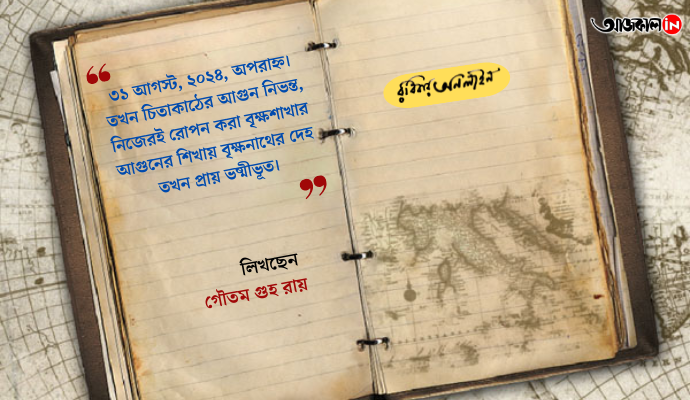 আজকাল in
রবিবার অনলাইন
“ ৩১ আগস্ট, ২০২৪, অপরাহ্ন।
তখন চিতাকাঠের আগুন নিভন্ত,
নিজেরই রোপন করা বৃক্ষশাখার
আগুনের শিখায় বৃক্ষনাথের দেহ
তখন প্রায় ভষ্মীভূত। ”
লিখছেন
গৌতম গুহ রায়